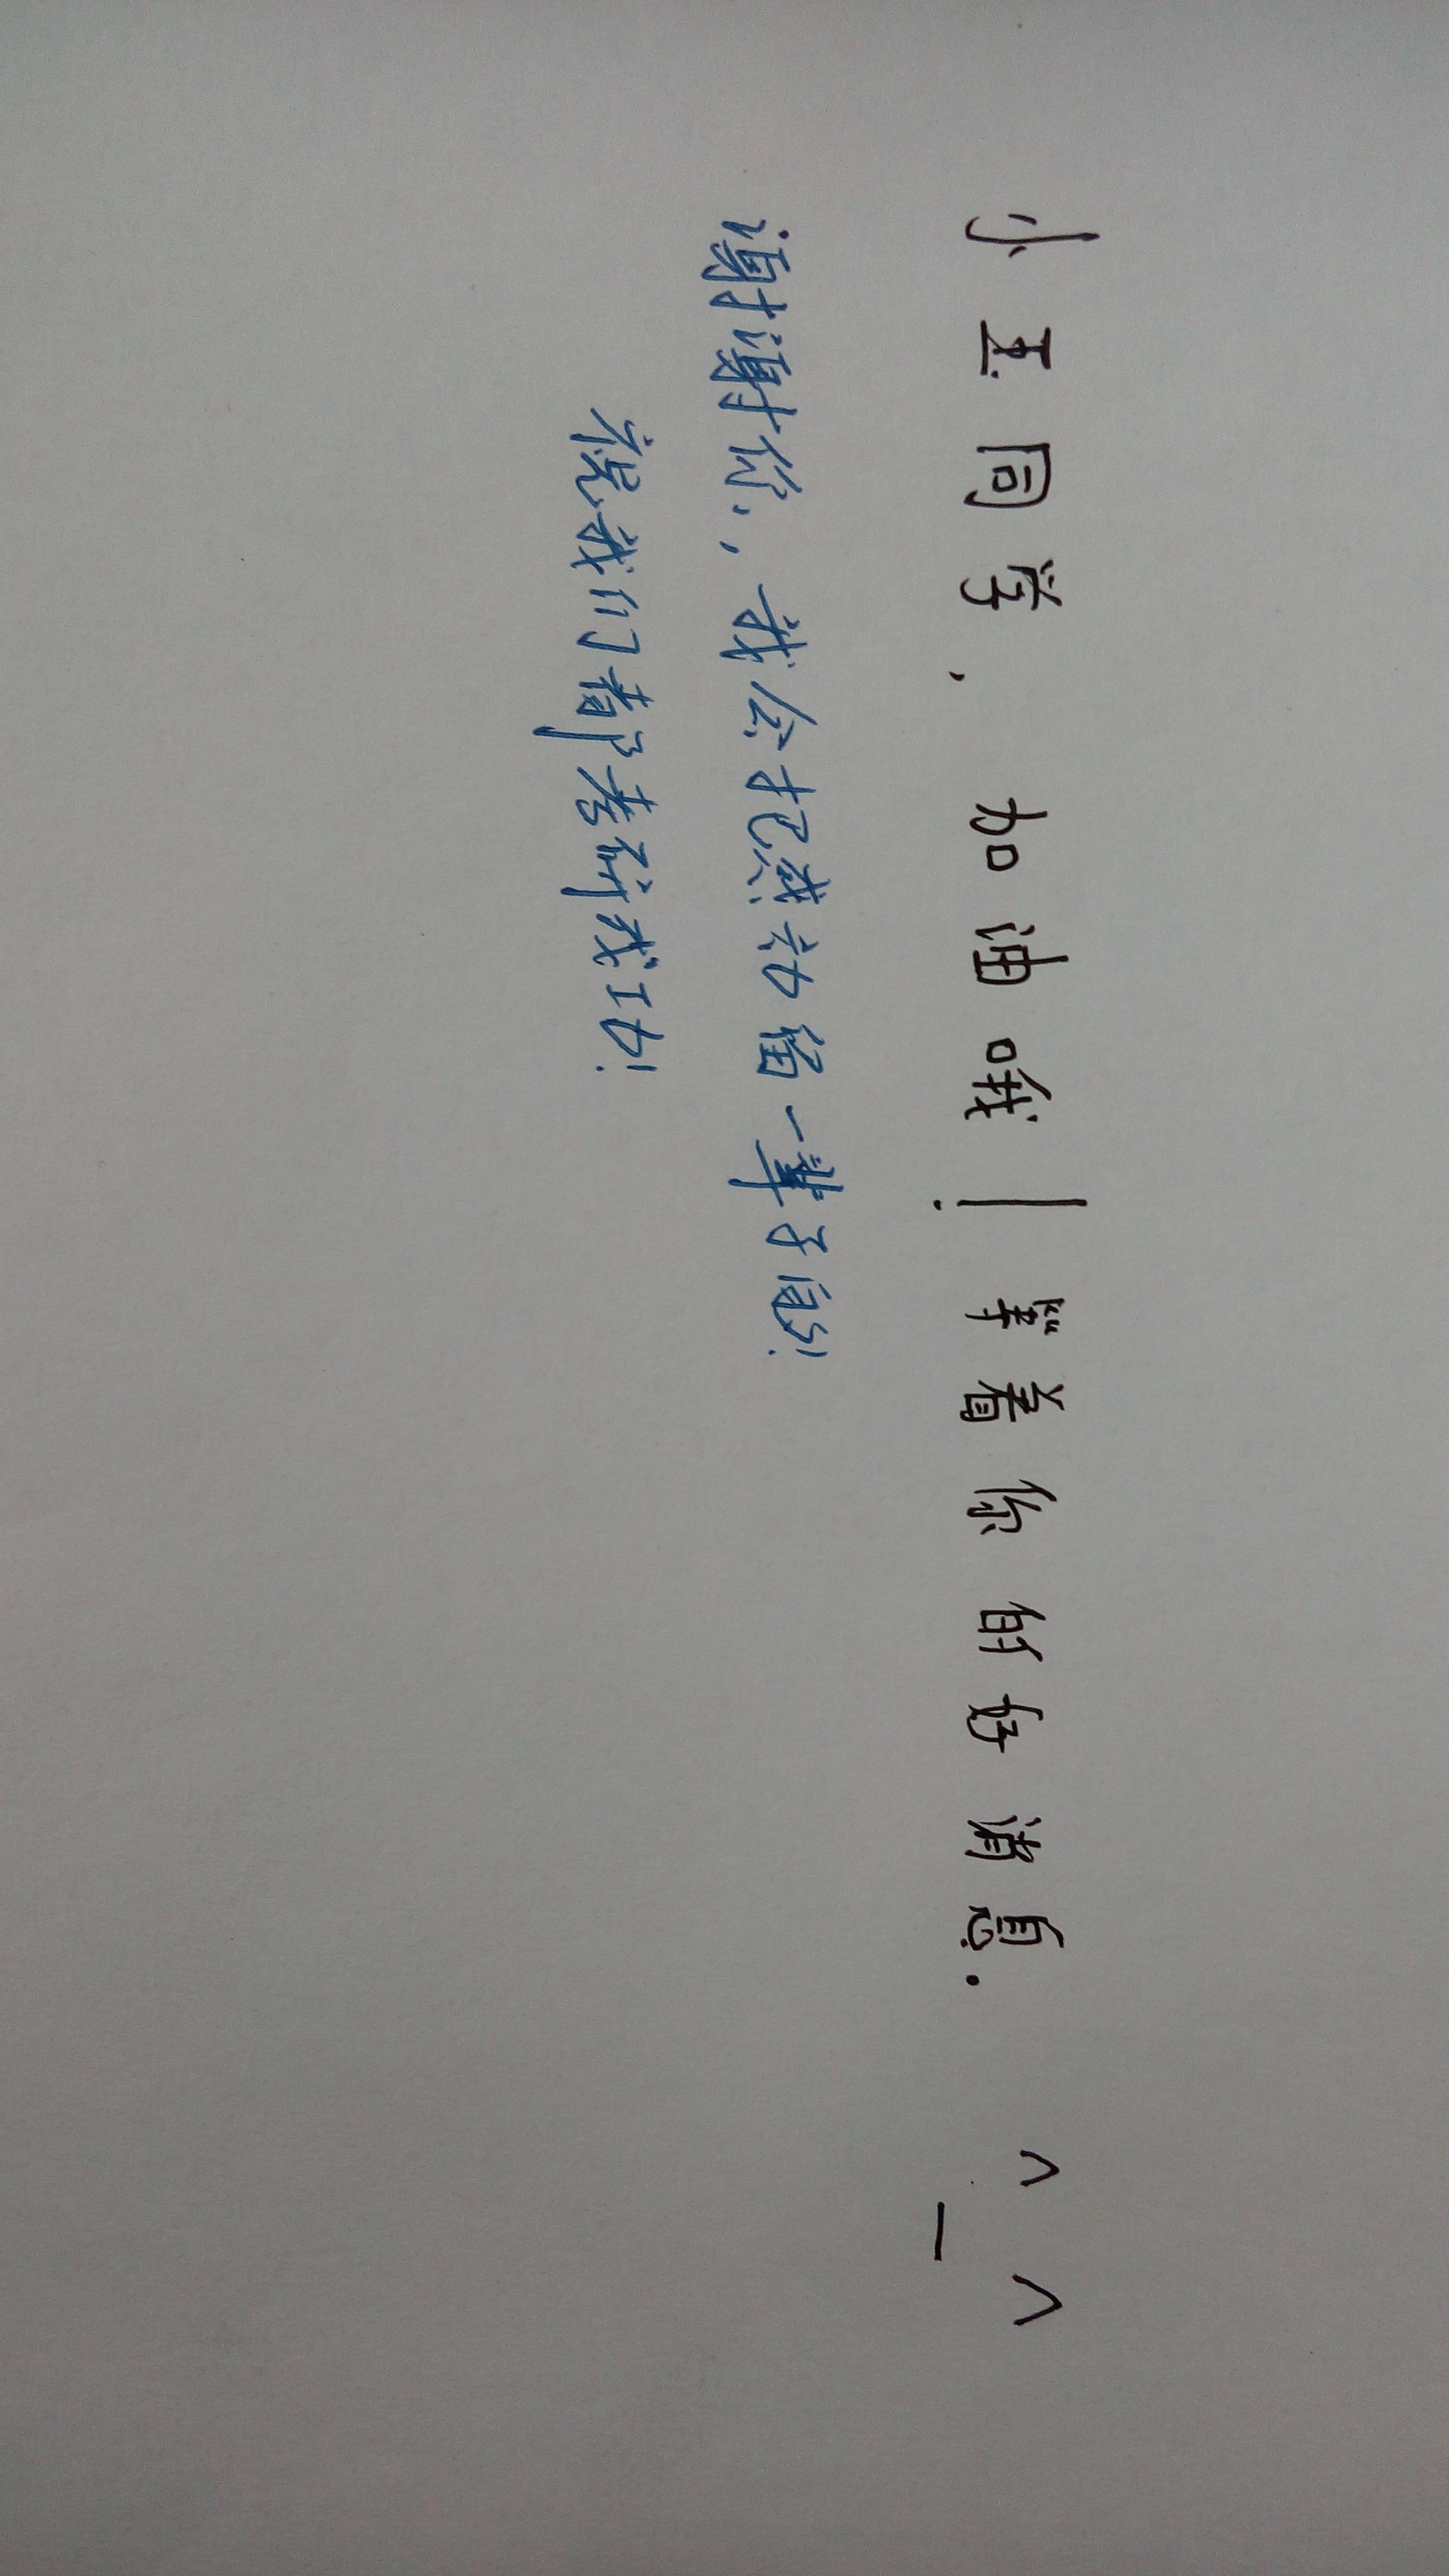 小玉同学，加油哦！等着你的好消息. ^_^
谢谢你，我会把感动留一辈子的！
祝我们都考研成功！